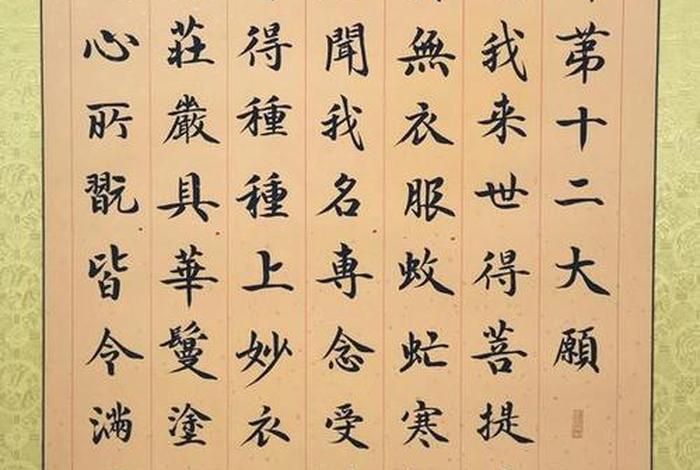 第十二大願
我来世得菩提
無衣服蚊虻寒
聞我名専念受
得種種上妙衣
莊嚴具華鬘塗
心所翫皆令滿